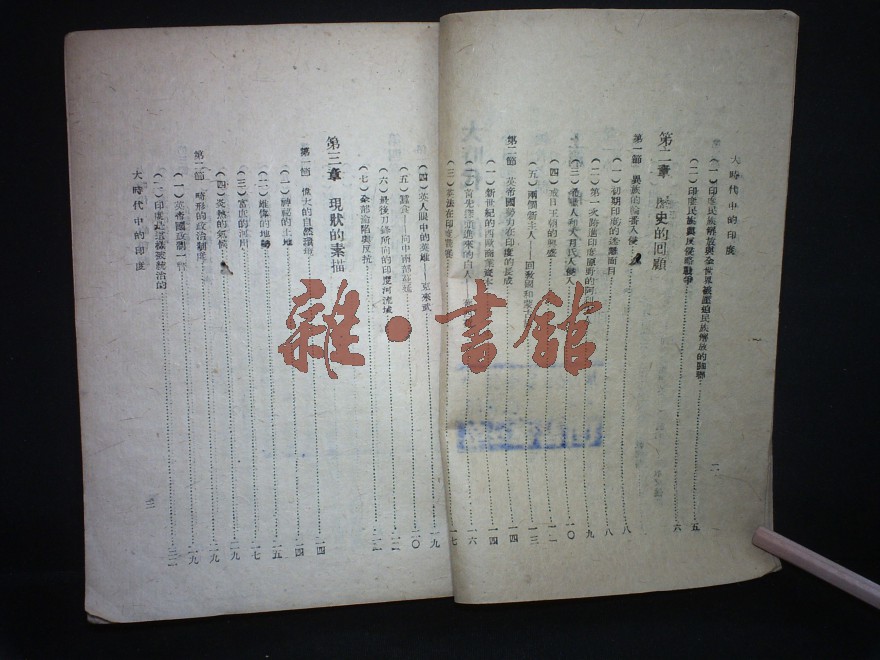 大時代中的印度
二
(一)印度民族解放與全世界被壓迫民族解放的關聯
(二)印度民族與反侵略戰爭……五
第二章 歷史的回顧……六
第一節 異族的輪番入侵……八
(一)初期印度的迷戀面目……八
(二)第一次踏進印度原野的阿……九
(三)希臘人和大月氏人侵入……一〇
(四)或日王朝的興盛……一二
(五)兩個新主人——回教國和蒙……一三
第二節 英帝國勢力在印度的長成……一四
(一)新世紀的西歐商業資本……一四
(二)首先擠進來的白人……一六
(三)英法在印度……一七
(四)英人眼中的英雄——克來武……一九
(五)蠶食——向中南部……二〇
(六)最後刀鋒所向的印度河流域……二二
(七)全部淪陷與反抗……
第三章 現狀的素描……二四
第一節 偉大的自然環境……二四
(一)神祕的土地……二五
(二)雄偉的地勢……二七
(三)富庶的河川……二九
(四)炎熱的氣候……二九
第二節 畸形的政治制度……二九
(一)英帝國政制一瞥……二九
(二)印度是這樣被統治的……三二
大時代中的印度
三
雜·書館